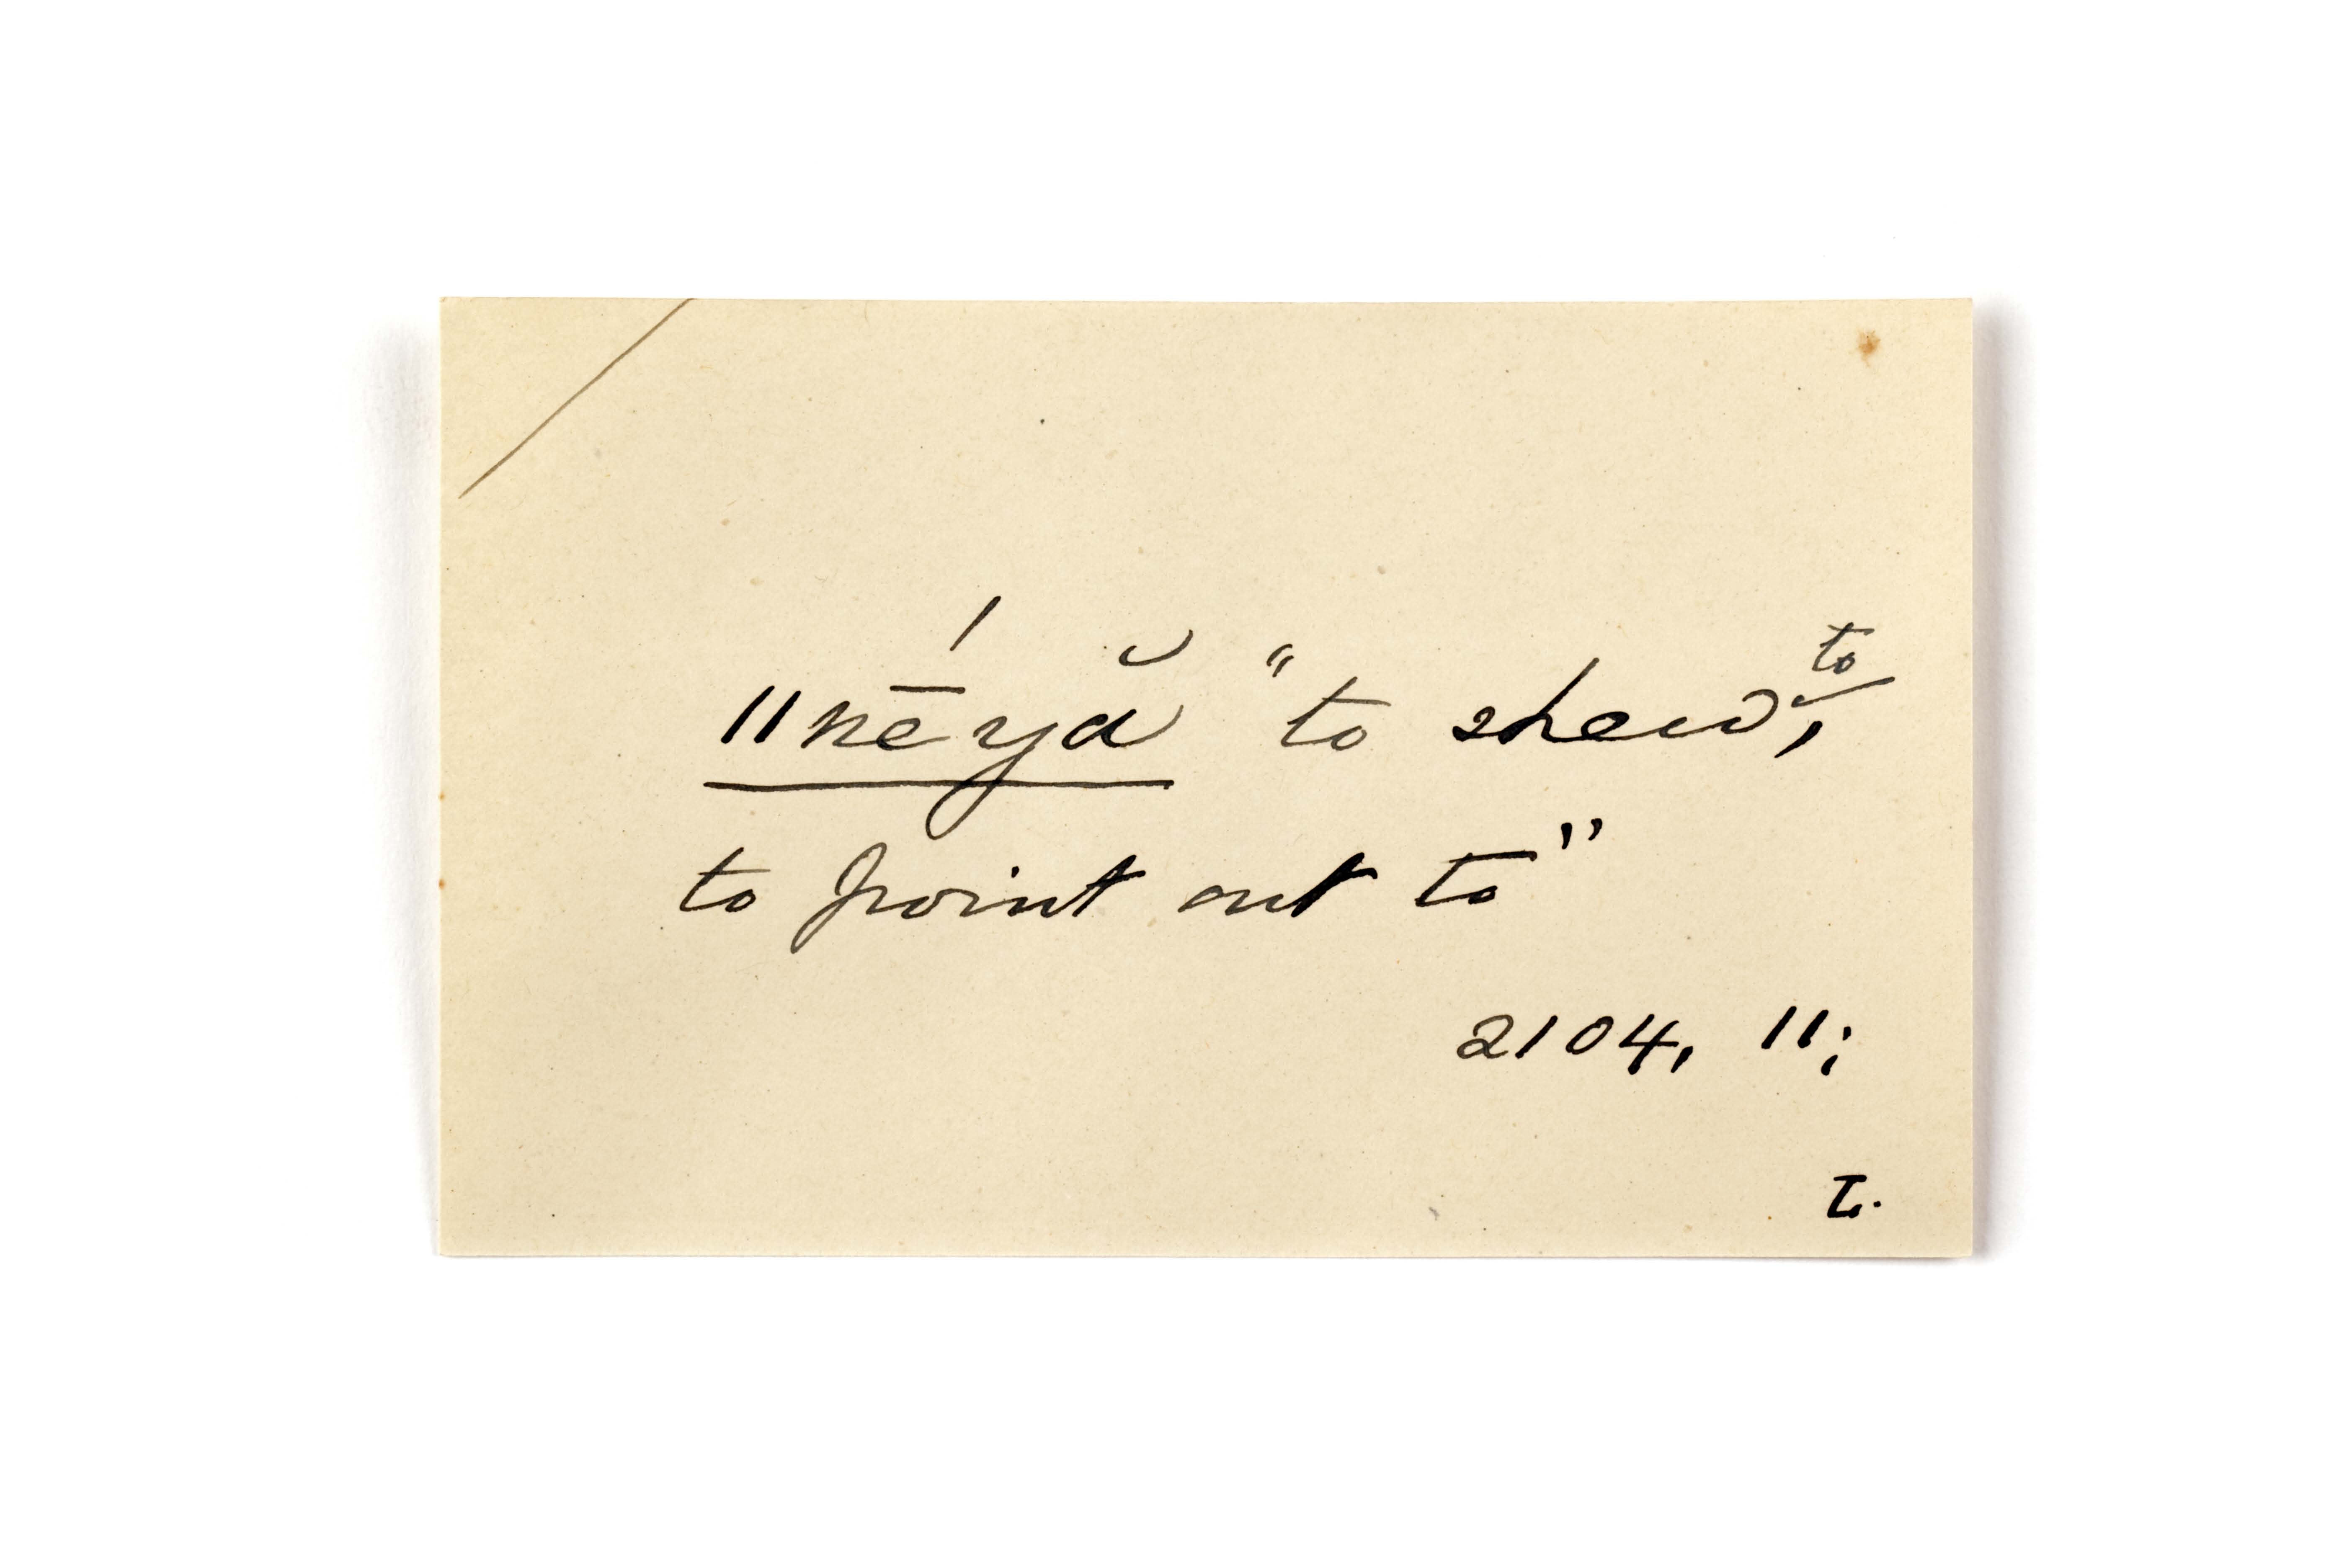 ǁnḗyă "to shew to,
to point out to"
2104, 11;
L.